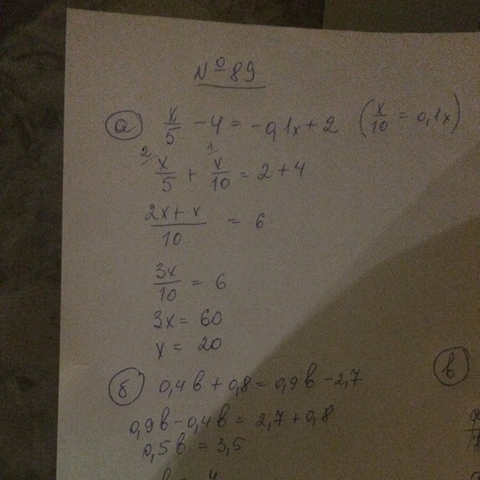 № 89
а) x/5 - 4 = -0,1x + 2 (x/10 = 0,1x)
2 x/5 + 1 x/10 = 2 + 4
2x + x/10 = 6
3x/10 = 6
3x = 60
x = 20
б) 0,4b + 0,8 = 0,9b - 2,7
0,9b - 0,4b = 2,7 + 0,8
0,5b = 3,5
в)